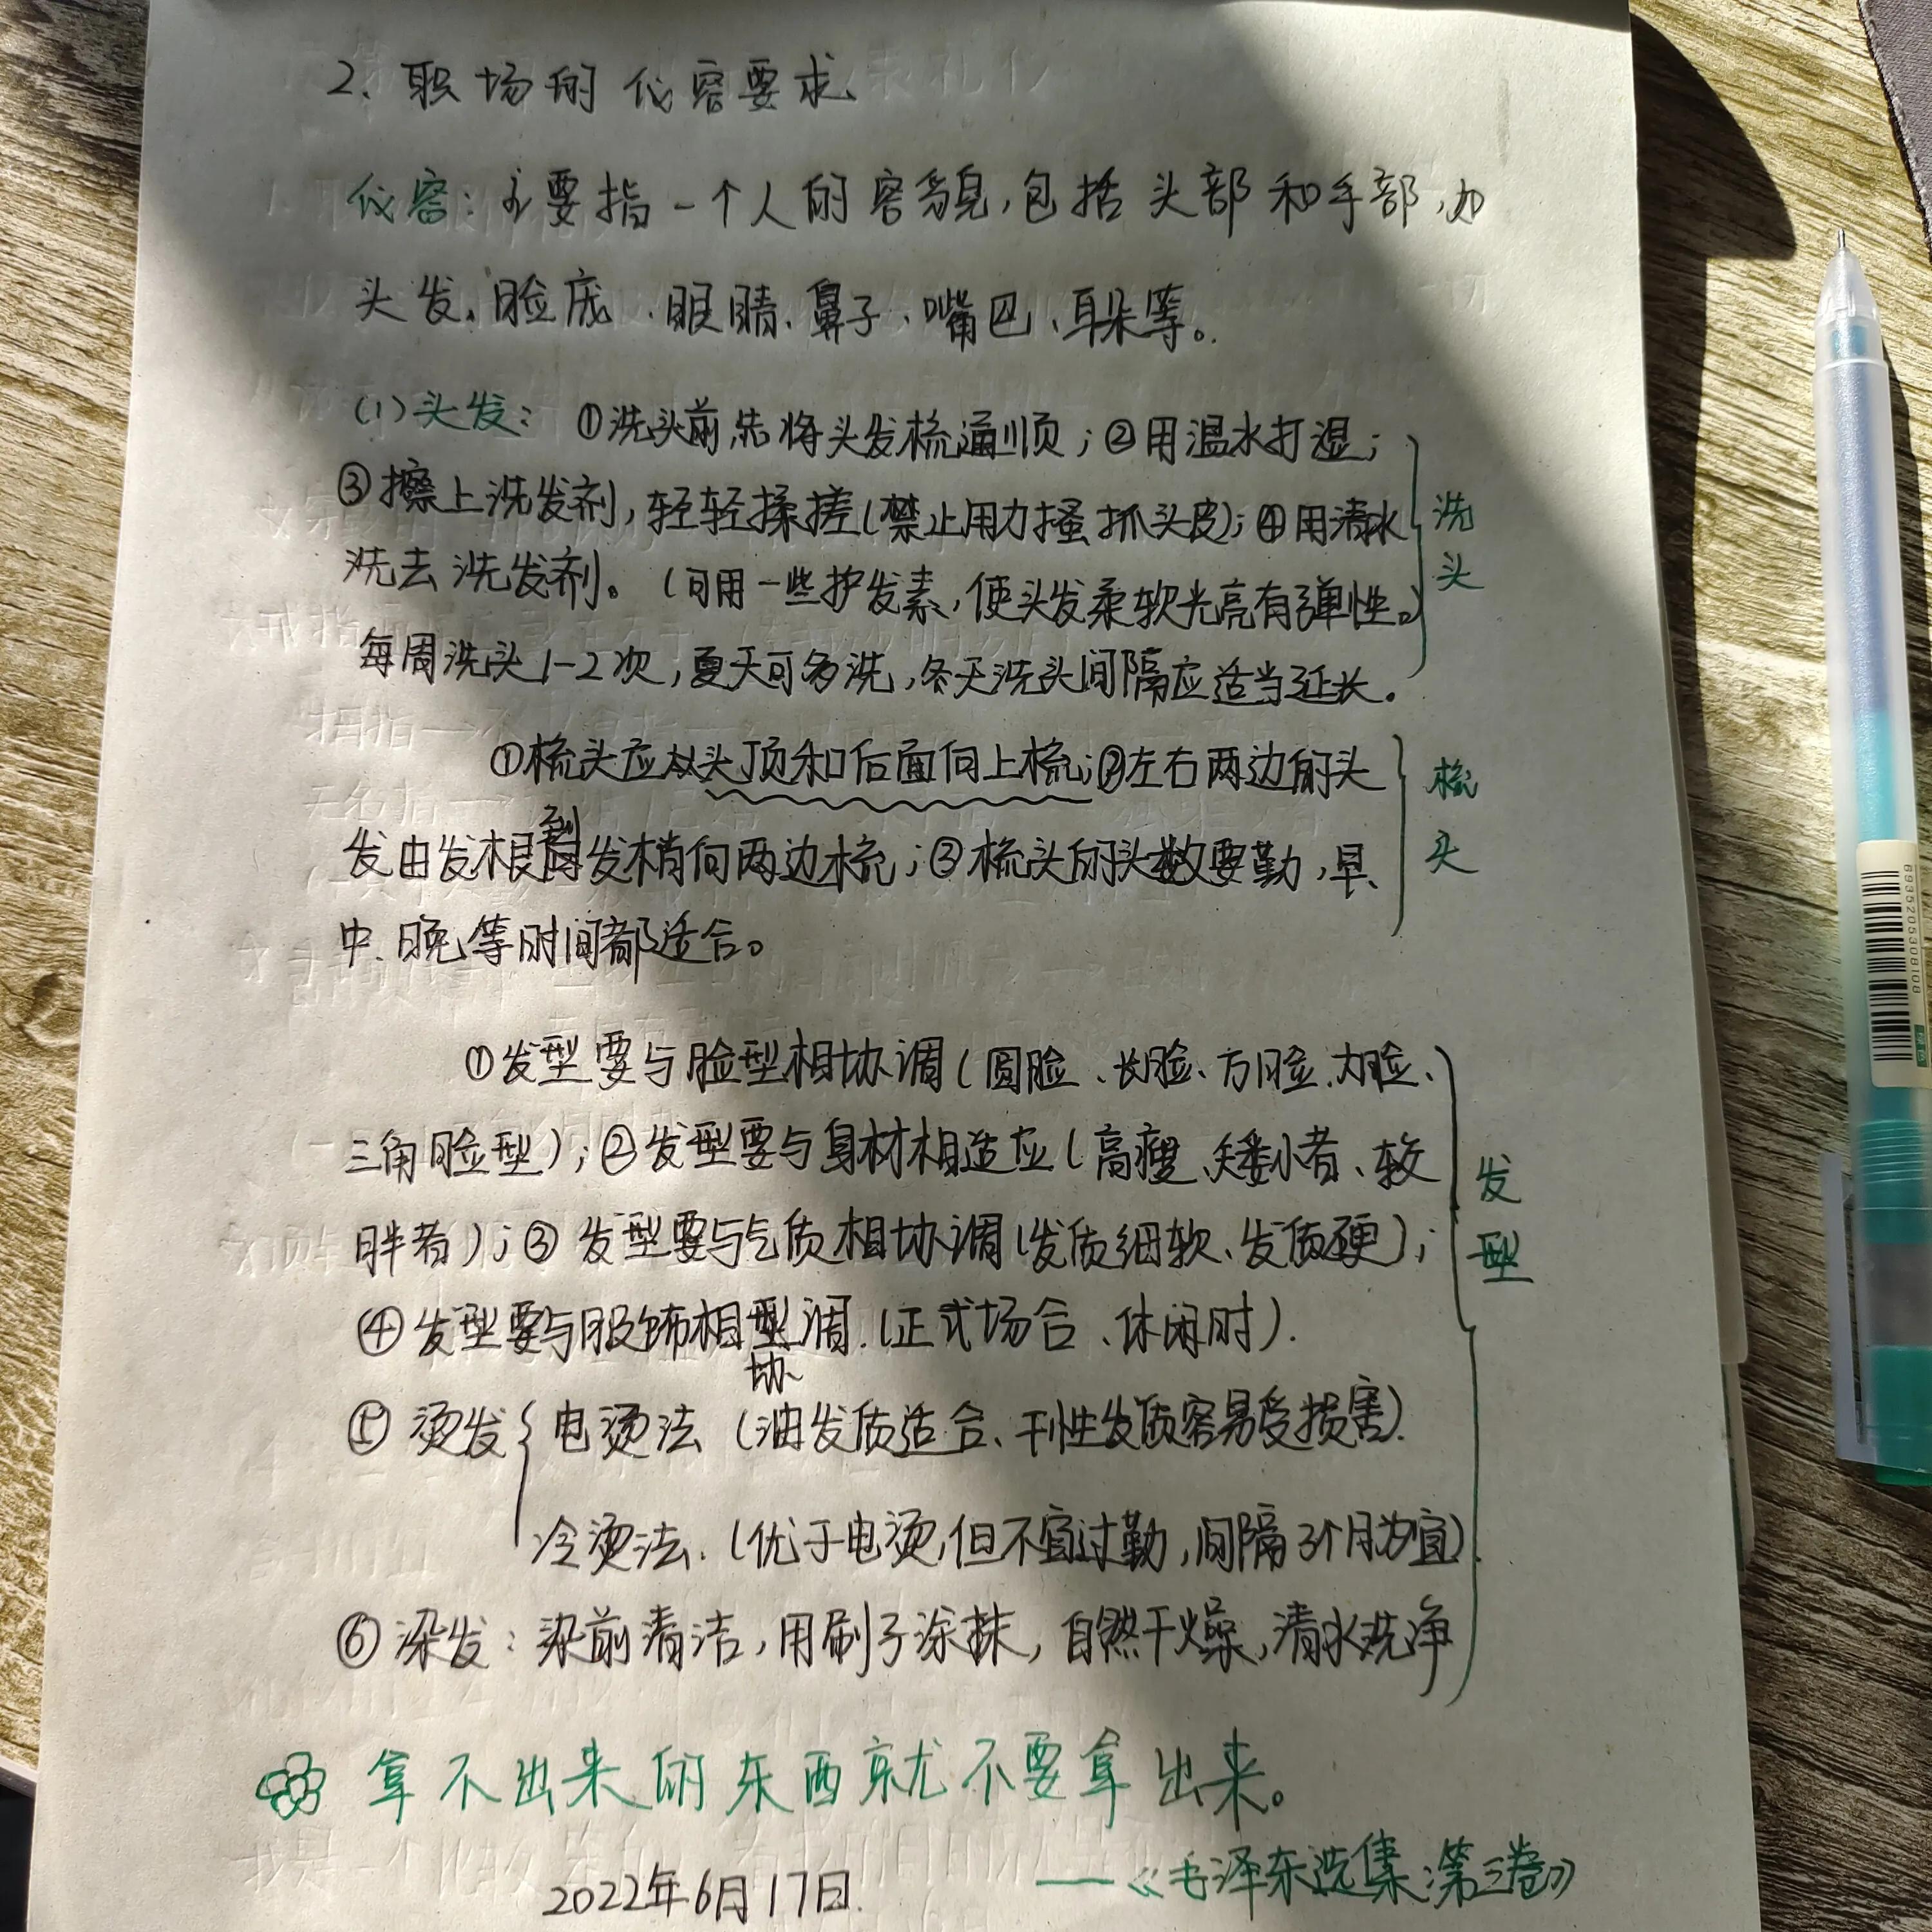 2、职场的仪容要求
仪容：主要指一个人的容貌，包括头部和手部，如
头发、脸庞、眼睛、鼻子、嘴巴、耳朵等。
(1)头发：①洗头前先将头发梳通顺；②用温水打湿；
③擦上洗发剂，轻轻揉搓(禁止用力搔抓头皮)；④用清水
洗去洗发剂。(可用一些护发素，使头发柔软光亮有弹性。)
每周洗头1-2次，夏天可多洗，冬天洗头间隔应适当延长。
洗头
①梳头应从头顶和后面向上梳；②左右两边的头
发由发根到发梢向两边梳；③梳头的头数要勤，早、
中、晚等时间都适合。
梳头
①发型要与脸型相协调(圆脸、长脸、方脸、大脸、
三角脸型)；②发型要与身材相适应(高瘦、矮小者、较
胖者)；③发型要与气质相协调(发质细软、发质硬)；
④发型要与服饰相协调.(正式场合、休闲时).
⑤烫发{电烫法(油发质适合、干性发质容易受损害).
冷烫法.(优于电烫,但不宜过勤,间隔3个月为宜).
⑥染发：染前清洁，用刷子涂抹，自然干燥，清水洗净
发型
拿不出来的东西就不要拿出来。
——《毛泽东选集;第三卷》
2022年6月17日.
6935205308108